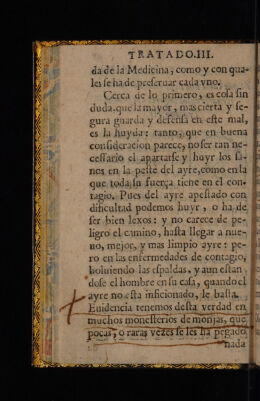 TRATADO.III.
da de la Medicina, como y con qua-
les se ha de preseruar cada vno.
Cerca de lo primero, es cosa sin
duda, que la mayor, mas cierta y se-
gura guarda y defensa en este mal,
es la huyda: tanto, que en buena
consideracion parece, no ser tan ne-
cessario el apartarse y huyr los sa-
nos en la peste del ayre, como en la
que toda su fuerça tiene en el con-
tagio. Pues del ayre apestado con
dificultad podemos huyr, o ha de
ser bien lexos: y no carece de pe-
ligro el camino, hasta llegar a nue-
uo, mejor, y mas limpio ayre: pe-
ro en las enfermedades de contagio,
boluiendo las espaldas, y aun estan
dose el hombre en su casa, quando el
ayre no esta inficionado, le basta.
Euidencia tenemos desta verdad en
muchos monesterios de monjas, que
pocas, o raras vezes se les ha pegado
nada